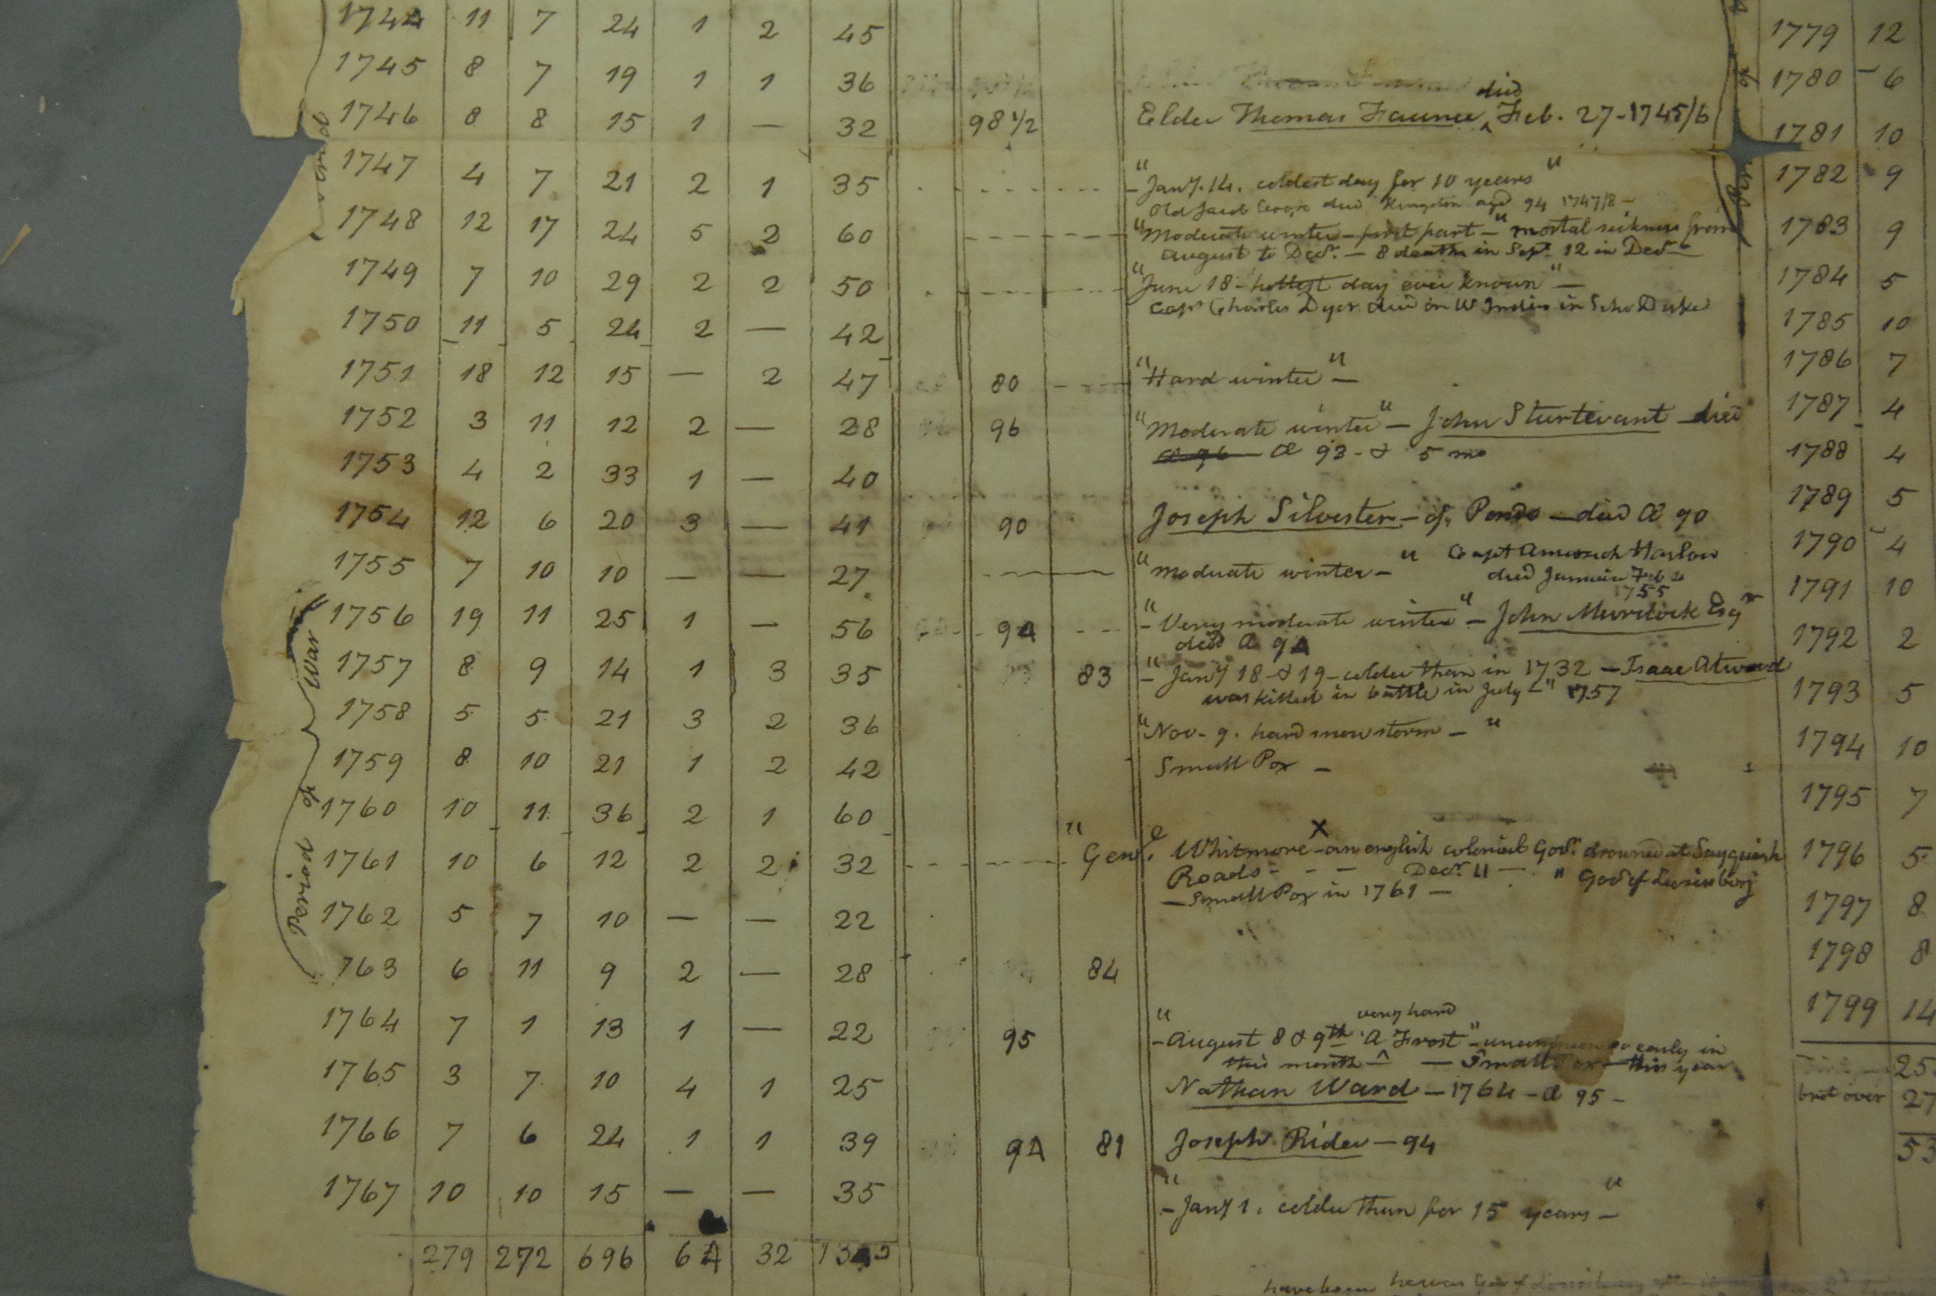 1744 11 7 24 1 2 45
1745 8 7 19 1 1 36
died
1746 8 8 15 1 — 32 98 1/2 Elder Thomas Faunce ^ Feb. 27 - 1745/6
1747 4 7 21 2 1 35 "Jany. 14. coldest day for 10 years"
Old Jacob died Kingston aged 94 1747/8 -
1748 12 17 24 5 2 60 "Moderate winter - first part - " mortal sickness from
August to Decr. - 8 deaths in Sept. 12 in Decr -
1749 7 10 29 2 2 50 "June 18 - hottest day ever known" -
Capt Charles Dyer died in W Indies in
1750 11 5 24 2 — 42
1751 18 12 15 — 2 47 80 "Hard winter" -
1752 3 11 12 2 — 28 96 "Moderate winter" - John Sturtevant died
Æ 96 Æ 93 - & 5 mo
1753 4 2 33 1 — 40
1754 12 6 20 3 — 41 90 Joseph Silvester - of Ponds - died Æ 90
1755 7 10 10 — — 27 "Moderate winter - " Capt Harlow
died Jamaica Feb 2
1755
1756 19 11 25 1 — 56 94 "Very moderate winter" - John Murdock Esqr
died Æ 94
1757 8 9 14 1 3 35 83 "Jany 18 - & 19 - colder than in 1732 - Isaac Atwood
was killed in battle in July - " 1757
1758 5 5 21 3 2 36 "Nov - 9. hard snow storm - "
1759 8 10 21 1 2 42 Small Pox -
1760 10 11 36 2 1 60
x
1761 10 6 12 2 2 32 "Genl. Whitmore - an english colonial Govr. drowned at Saquish
Roads - - - Decr. 11 - " Govr of Louisburg
- Small Pox in 1761 -
1762 5 7 10 — — 22
763 6 11 9 2 — 28 84
very hard
1764 7 1 13 1 — 22 95 "August 8 & 9th "A Frost" - uncommon so early in
this month - ^ - Small Pox - this year
1765 3 7 10 4 1 25 Nathan Ward - 1764 - Æ 95 -
1766 7 6 24 1 1 39 94 81 Joseph Rider - 94
1767 10 10 15 — — 35 "Jany 1. colder than for 15 years - "
279 272 696 64 32
have been he was Gov of
Period of War
Period
1779 12
1780 6
1781 10
1782 9
1783 9
1784 5
1785 10
1786 7
1787 4
1788 4
1789 5
1790 4
1791 10
1792 2
1793 5
1794 10
1795 7
1796 5
1797 8
1798 8
1799 14
25
brot over 27
53